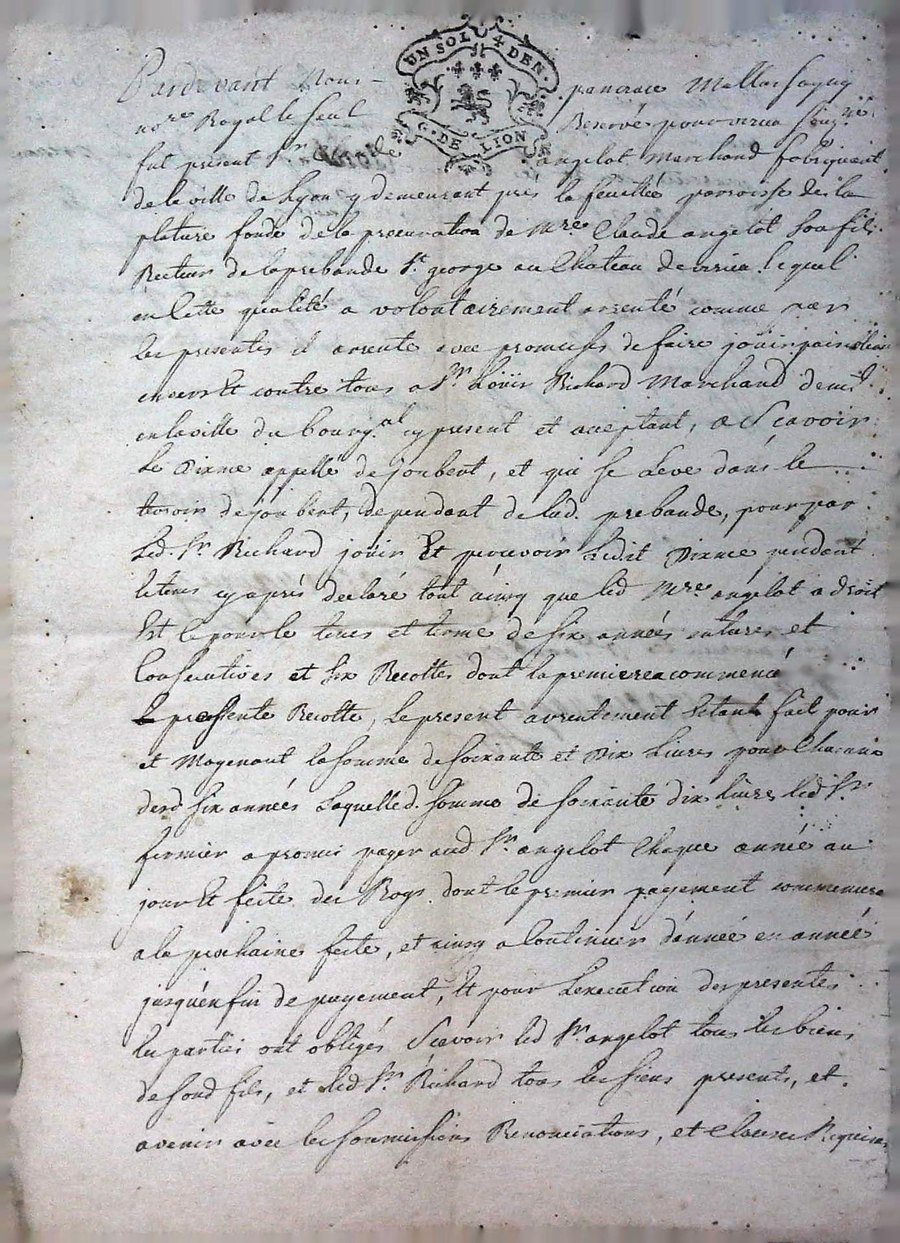 UN SOL 4 DEN.
G. DE LION
Pardevant Nous pancrace
no.re Royal le seul Reservé pour virieu
fut present Sr angelot Marchand fabriquant
de la ville de Lyon y demeurant prés la feuillée parroisse de la
plature fondé de la procuration de Mre. Claude angelot son fils
Recteur de la prebande St. george au Chateau de virieu lequel
en cette qualité a volontairement arenté comme par
les presentes il arente avec promesses de faire joüir
envers Et contre tous a Sr. Loüis Richard Marchand
en la ville de bourg.al cy present et acceptant, a Scavoir
Le Dixme appellé de joubert, et qui se Leve dans le
de joubert, dependant de lad. prebande, pour par
Led. Sr. Richard joüir Et percevoir Ledit Dixme pendant
le tems cy aprés declaré tout ainsy que led Mre angelot a droit
Est ce pour le tems et terme de six années et
Consecutives et six Recoltes dont la premiere a commencé
presente Recolte, Le present arrentement Etant fait pour
et Moyenant la somme de soixante et Dix Livres pour Chacune
desd six années Laquelled. somme de soixante dix Livres led Sr.
fermier a promis payer aud Sr. angelot Chaque année au
jour Et feste des Roys dont le premier payement commencera
a la prochaine feste, et ainsy a Continuer d'année en année
jusqu'en fin de payement, Et pour Lexecution des presentes
les parties ont obligés Scavoir led Sr. angelot tous les biens
de sond fils, et led Sr. Richard tous les siens presents, et
avenir avec les soumissions Renonciations, et Clauses